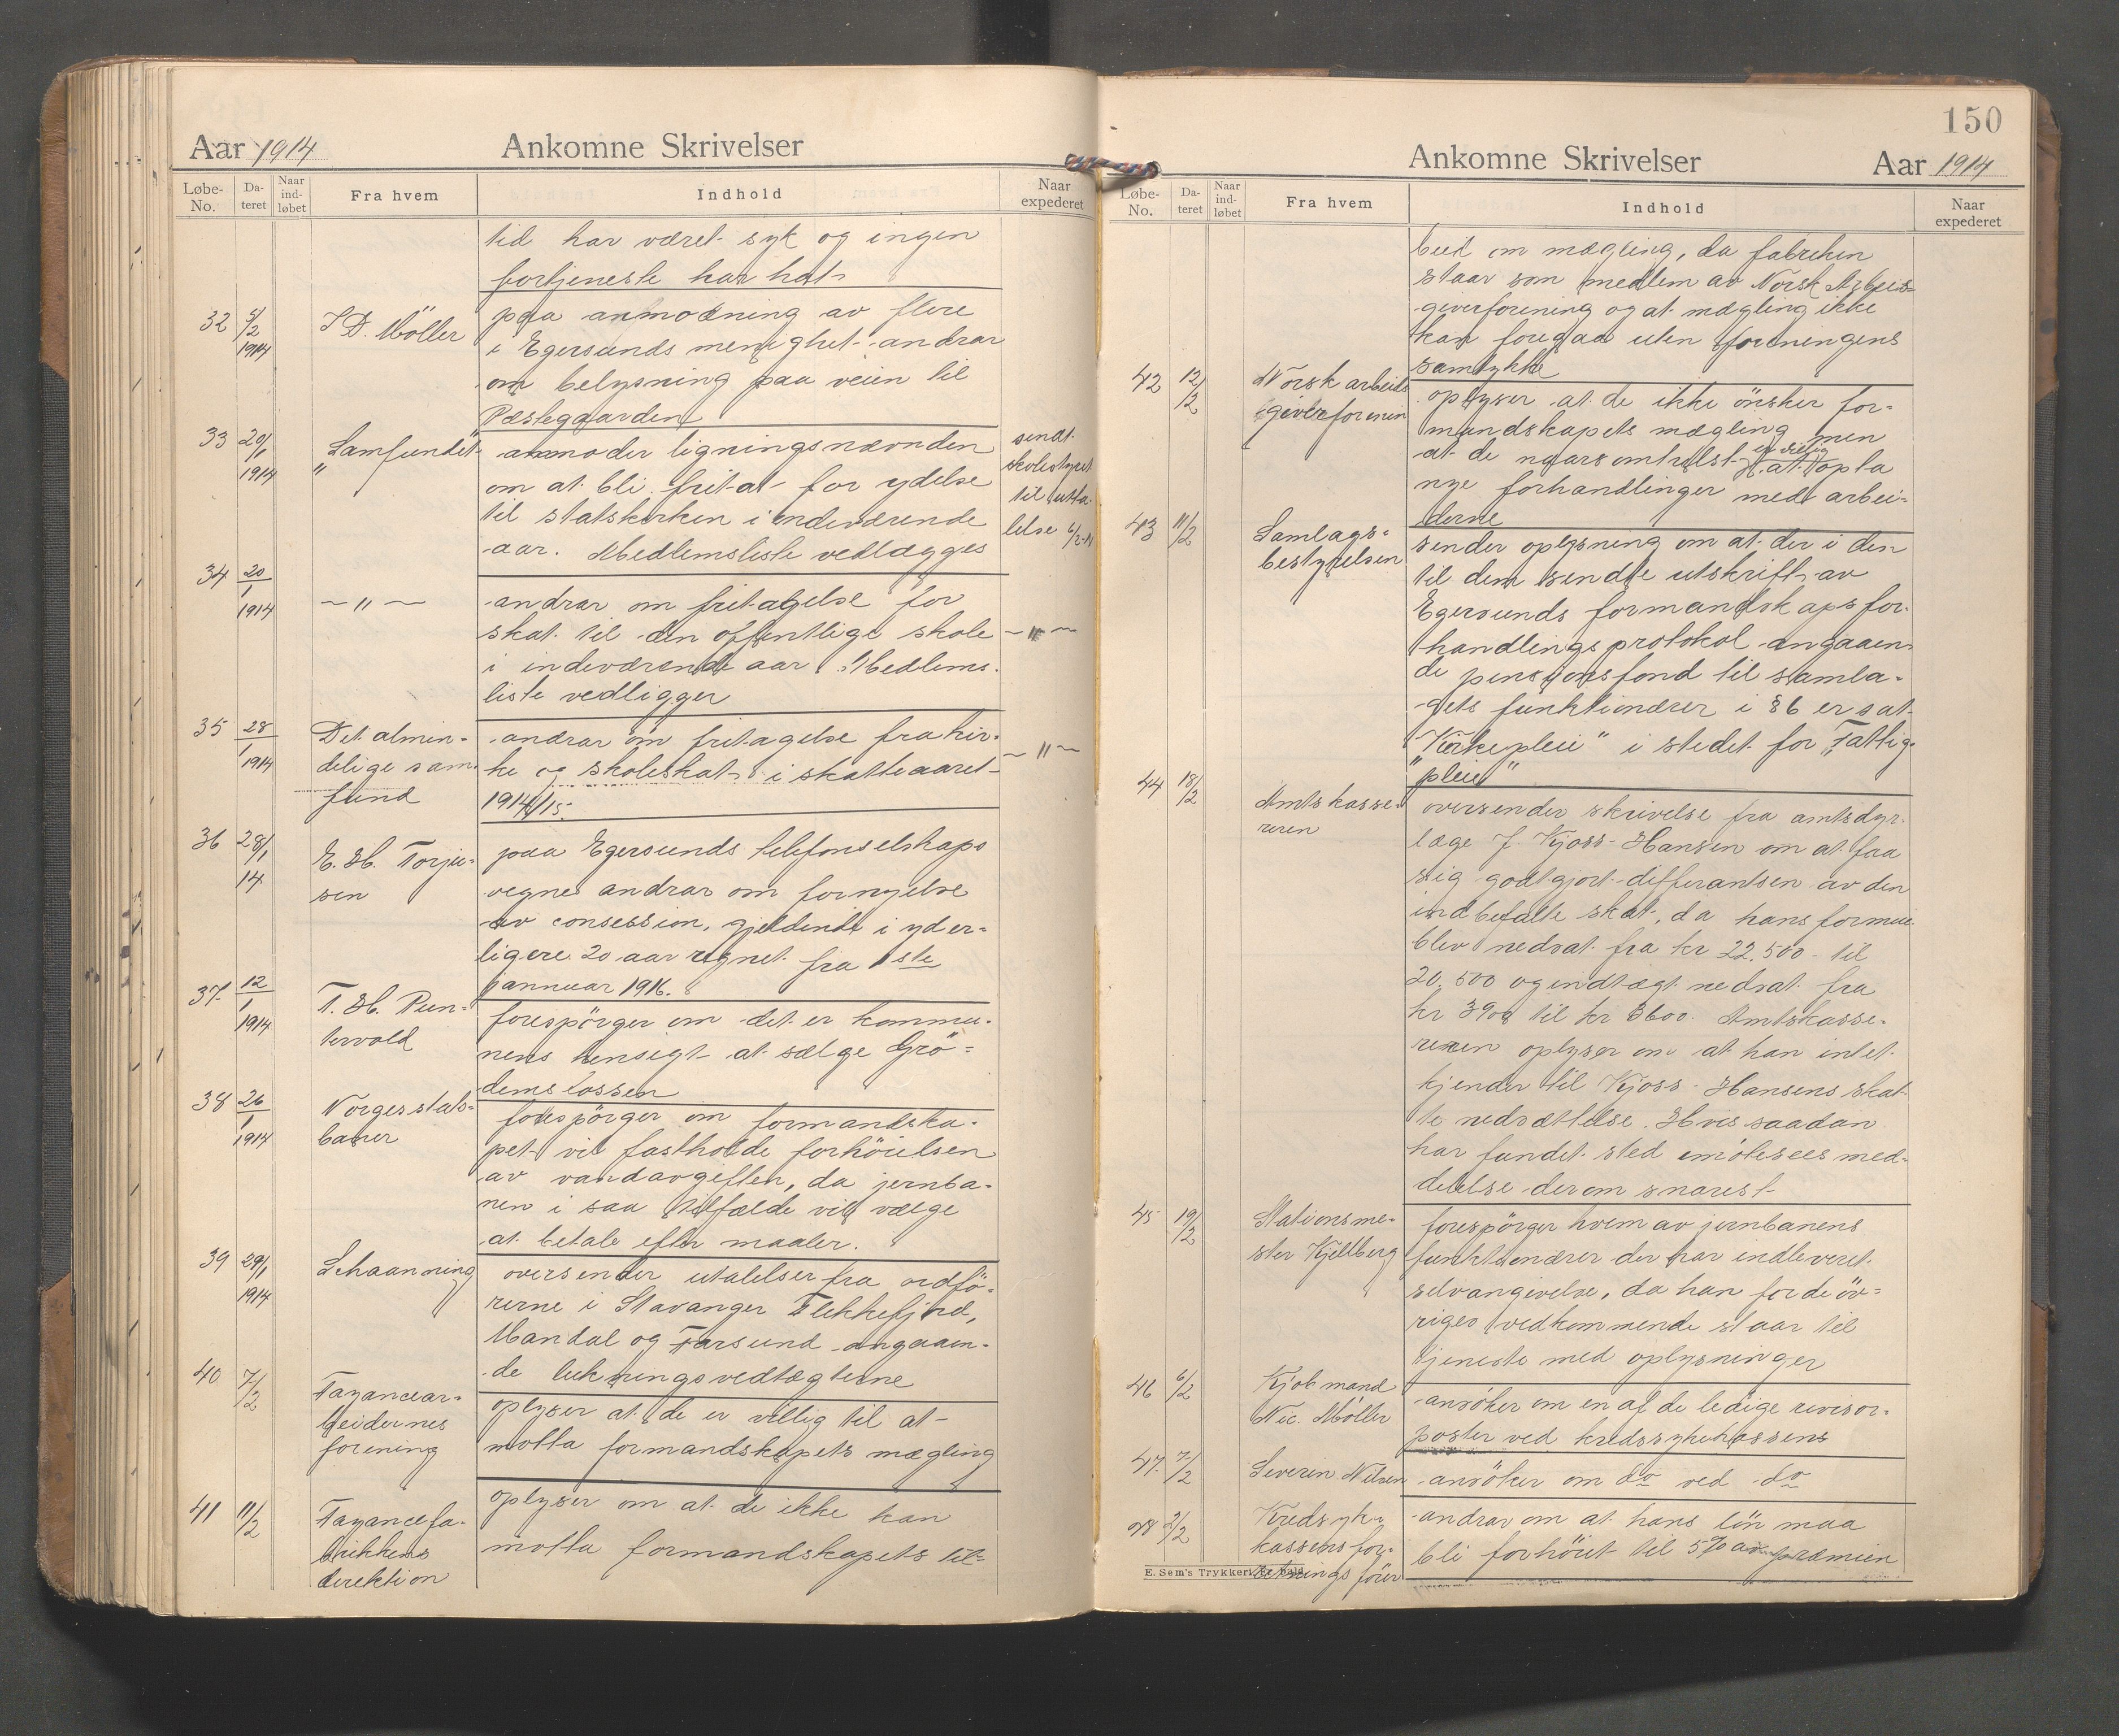 Aar 1914 Ankomne Skrivelser
Løbe-No. Dateret Naar indløbet Fra hvem Indhold Naar expederet
tid har været syk og ingen
fortjeneste har hat
32 5/2 1914 J D. Möller paa anmodning av flere
i Egersunds menighet andrar
om belysning paa veien til
Præstegaarden
33 20/1 1914 "Samfundet" anmoder ligningsnævnden sendt
om at bli fritat for ydelse skolestyret
til statskirken i indeværende til utta-
aar. Medlemsliste vedlægges lelse 6/2-14
34 20/1 1914 — " — andrar om fritagelse for
skat til den offentlige skole — " —
i indeværende aar. Medlems-
liste vedligger
35 28/1 1914 Det almin- andrar om fritagelse fra kir-
delige sam- ke og skoleskat i skatteaaret — " —
fund 1914/15.
36 28/1 14 E. H. Torju- paa Egersunds telefonselskaps
sen vegne andrar om fornyelse
av consession, gjeldende i yder-
ligere 20 aar regnet fra 1ste
jannuar 1916.
37 12/1 1914 T. H. Pun- forespörger om det er kommu-
tervold nens hensigt at sælge Grö-
demsfossen
38 26/1 1914 Norges stats- forespörger om formandska-
baner pet vil fastholde forhöielsen
av vandavgiften, da jernba-
nen i saa tilfælde vil vælge
at betale efter maaler.
39 29/1 1914 Schaanning oversender utalelser fra ordfö-
rerne i Stavanger Flekkefjord,
Mandal og Farsund angaaen-
de lukningsvedtægterne
40 7/2 Fayancear- oplyser at de er villig til at
beidernes motta formandskapets mægling
forening
41 11/2 Fayancefa- oplyser om at de ikke kan
brikkens motta formandskapets til-
direktion
150
Ankomne Skrivelser Aar 1914
Løbe-No. Dateret Naar indløbet Fra hvem Indhold Naar expederet
bud om mægling, da fabriken
staar som medlem av Norsk Arbeis-
giverforening og at mægling ikke
kan foregaa uten foreningens
samtykke
42 12/2 Norsk arbeids oplyser at de ikke önsker for-
giverforenin mandskapets mægling men
at de naarsomhelst er villig at opta
nye forhandlinger med arbei-
derne
43 11/2 Samlags- sender oplysning om at der i den
bestyrelsen til dem sendte utskrift av
Egersunds formandskapsfor-
handlingsprotokol angaaen-
de pensjonsfond til samla-
gets funktionærer i § 6 er sat
"Kirkepleie" i stedet for "Fattig-
pleie"
44 18/2 Amtskasse- oversender skrivelse fra amtsdyr-
reren læge J. Kjoss-Hansen om at faa
sig godtgjort differantsen av den
indbefalte skat, da hans formue
blev nedsat fra kr 22.500 til
20.500 og indtægt nedsat fra
kr 3900 til kr 3600. Amtskasse-
reren oplyser om at han intet
kjender til Kjoss-Hansens skat-
te nedsættelse. Hvis saadan
har fundet sted imötesees med-
delelse derom snarest
45 19/2 Stationsme- forespörger hvem av jernbanens
ster Kjellberg funktionærer der har indleveret
selvangivelse, da han for de öv-
riges vedkommende staar til
tjeneste med oplysninger
46 6/2 Kjobmand ansöker om en af de ledige revisor-
Nic. Möller poster ved kredssykekassens
47 7/2 Severin Nilsen ansöker om do ved do
48 3/2 Kredsyke andrar om at hans lön maa
kassens for- bli forhöiet til 5% av præmien
retningsförer
E. Sem's Trykkeri, Fr.hald